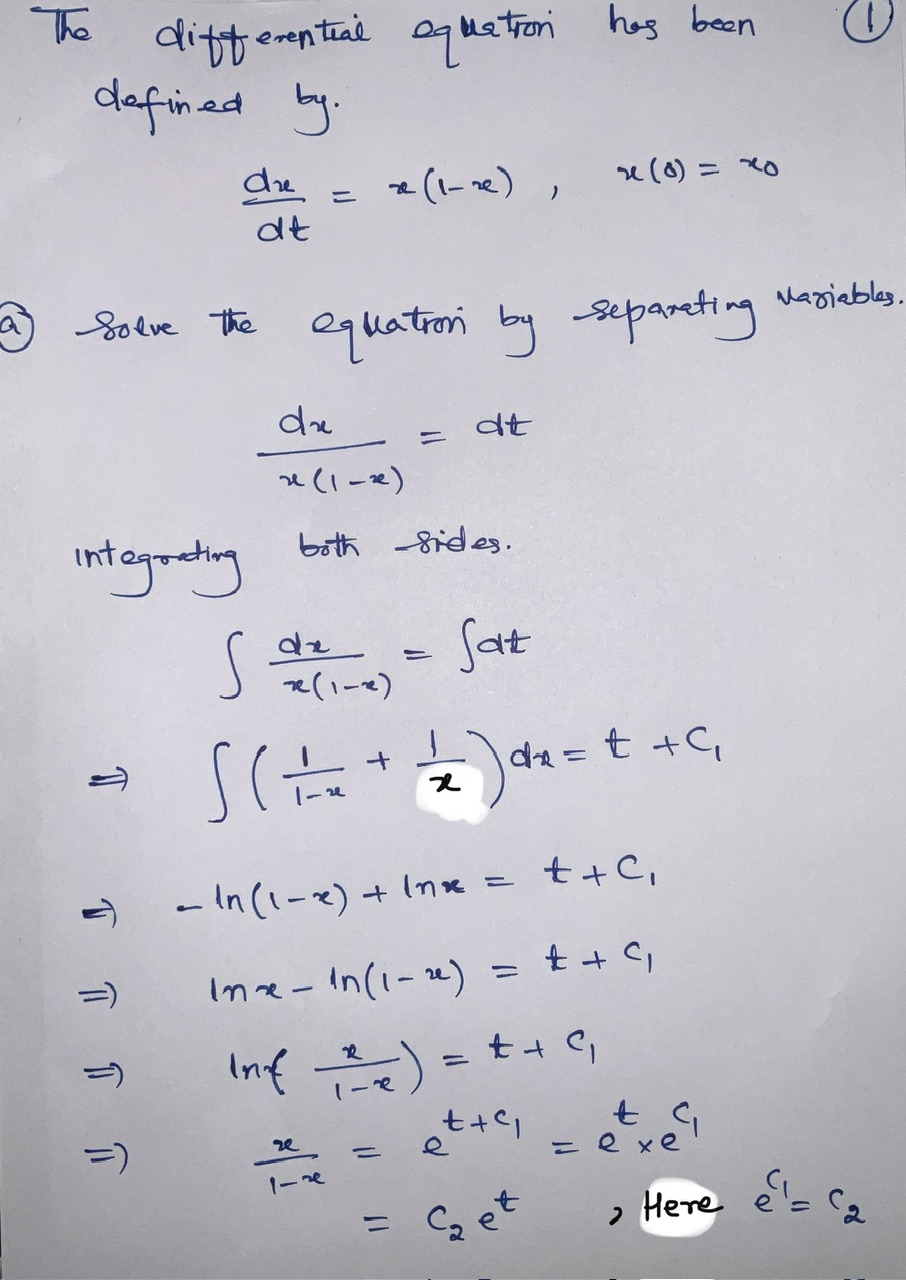 The differential equation has been ①
defined by.
dx/dt = x(1-x) , x(0) = x0
ⓐ Solve the equation by separating variables.
dx/x(1-x) = dt
integrating both sides.
∫ dx/x(1-x) = ∫dt
⇒ ∫(1/1-x + 1/x)dx = t + C₁
⇒ - ln(1-x) + lnx = t + C₁
⇒ lnx - ln(1-x) = t + C₁
⇒ ln(x/1-x) = t + C₁
⇒ x/1-x = e^(t+C₁) = e^t × e^C₁
= C₂ e^t , Here e^C₁ = C₂